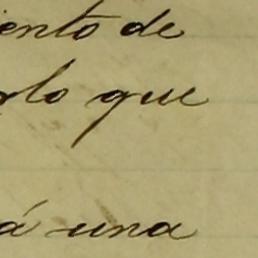 iento de
rlo que
á una